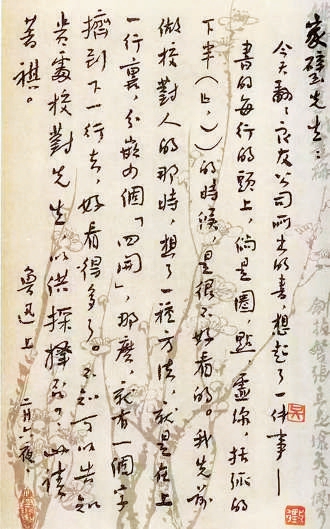 家璧先生：
今天翻了良友公司所出的書，想起了一件事——
書的每行的頭上，倘是圈點虛線，括弧的
下半（」，）的時候，是很不好看的。我先前
做校對人的那時，想了一種方法，就是在上
一行裏，分嵌四個「四開」，那麼，就有一個字
擠到下一行去，好看得多了。不知可以告知
貴處校對先生以供採擇否？此請
著祺。
魯迅上 二月六夜．